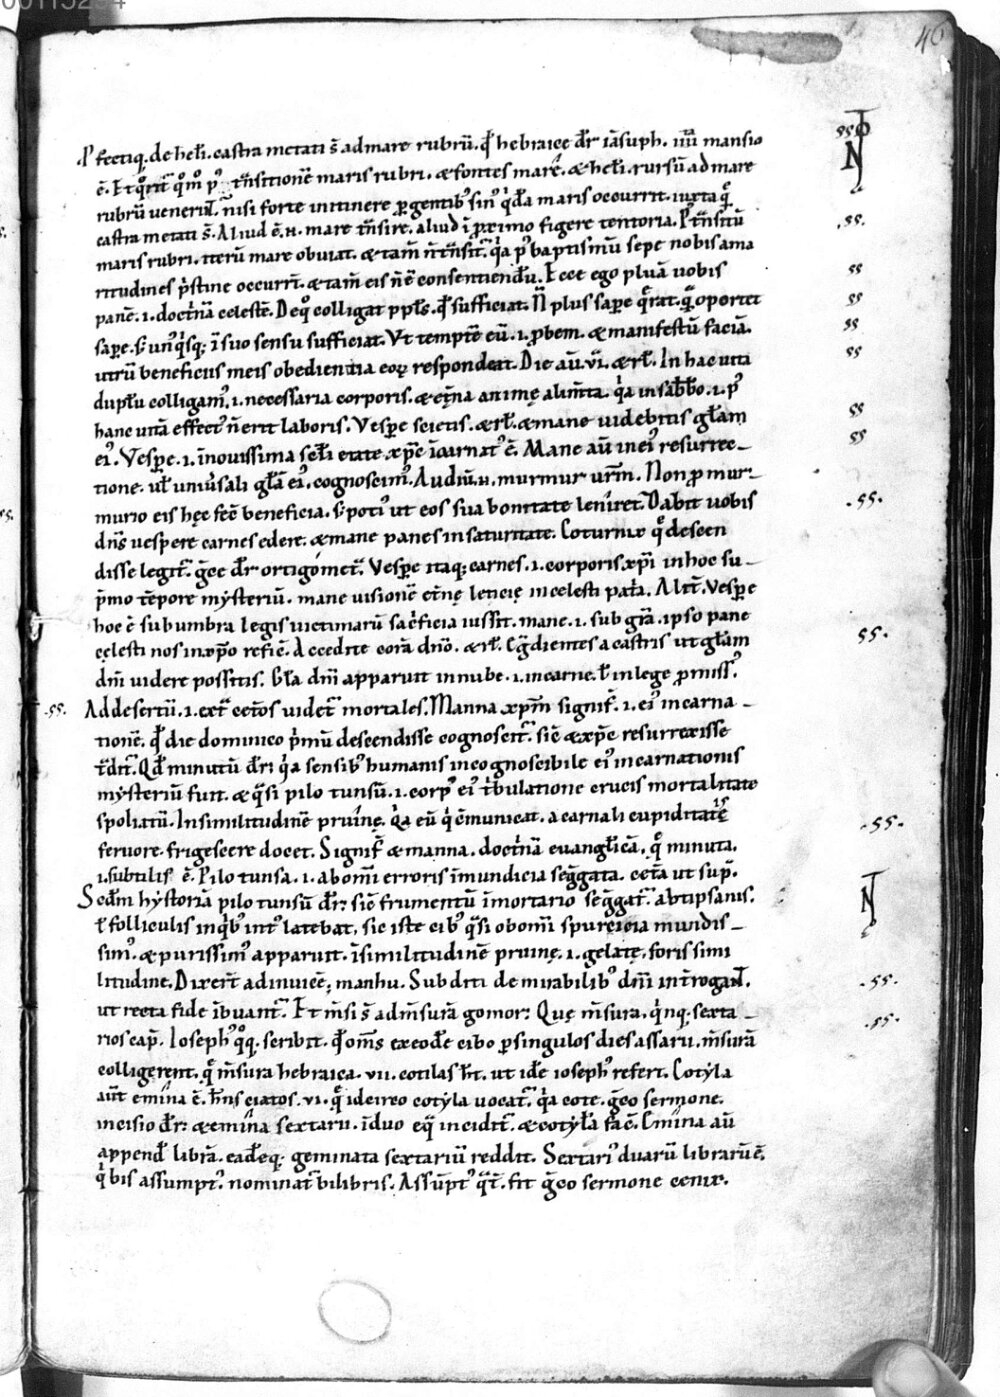 00115254
46
.P fectiq. de helı̄. castra metati s̄ admare rubrū. qđ hebraice dr̄ iāsuph. iiii mansio
ē. Et qͦrit̄ qͦm pꝰ tn̄sitionē maris rubri. & fontes marę. & helı̄. rursū ad mare
rubrū uenerūt. nisi forte initinere ꝑgentibꝰ sinꝰ qͥdā maris occurrit. iuxta qͦ
castra metati s̄. Aliud ē .n. mare tn̄sire. aliud ī ꝓximo figere tentoria. Pꝰ tn̄sitū
maris rubri. iterū mare obuiat. & tam̄ n̄ tn̄sit̄. qͥa pꝰ baptismū sepe nobis ama
ritudines pͥstine occurrt̄. & tam̄ eis n̄ ē consentiendū. Ecce ego pluā uobis
panē .i. doctͥnā celestē. Deqͦ colligat ppl̄s. qđ sufficiat. N̄ plus saꝑe qͣrat. qͣ oportet
saꝑe. s; unꝰqͥsq; ī suo sensu sufficiat. Vt temptē eū .i. ꝓbem. & manifestū faciā.
utrū beneficiis meis obedientia eoꝝ respondeat. Die aū. vi. & rl̄. In hac uita
duplū colligamꝰ .i. necessaria corporis. & et̄na animę alim̄ta. qͥa in sabb̄o .i. pꝰ
hanc uitā effectꝰ n̄ erit laboris. Vesꝑe scietis. & rl̄. & mane uidebitis glām
eiꝰ. Vesꝑe .i. ī nouissima secl̄i etate xp̄c īcarnatꝰ ē. Mane aū in eiꝰ resurrec_
tione. ul̄ uniu̇sali glā eiꝰ. cognoscimꝰ. Audiui .n. murmur ur̄m. Non ꝓ mur_
murio eis hęc fec̄ beneficia. s; potiꝰ ut eos sua bonitate leniret. Dabit uobis
dn̄s uespere carnes edere. & mane panes in saturitate. Coturnix qͦ descen
disse legit̄. g̅ce dr̄ ortigomet̄. Vesꝑe itaq; carnes .i. corporis xp̄i in hoc su_
pͥmo tēpore mysteriū. mane uisionē et̄nę letitię in celesti pat̄a. Alit̄. Vesꝑe
hoc ē sub umbra legis uictimarū sac̄ficia iussit. mane .i. sub gr̄a. ipso pane
cęlesti nos in xp̄o refic̄. Accedite corā dn̄o. & rl̄. Egͣdientes a castris ut glām
dn̄i uidere possitis. Gl̄a dn̄i apparuit in nube .i. in carne. ł in lege ꝓmissꝰ.
Ad desertū .i. ext̄ cet̄os uidet̄ mortales. Manna xp̄m signif̄ .i. eiꝰ incarna_
tionē. qđ die dominico pͥmū descendisse cognoscit̄. sic̄ & xp̄c resurrexisse
t̄dit̄. Qđ minutū dr̄: qͥa sensibꝰ humanis incognoscibile eiꝰ incarnationis
mysteriū fuit. & qͣsi pilo tunsū .i. corpꝰ eiꝰ tͥbulatione crucis mortalitate
spoliatū. In similitudinē pruinę. Qͥa eū qͥ c̄municat. a carnali cupiditatis
feruore. frigescere docet. Signif̄ & manna. doctͥnā euanglicā. qͦ minuta
.i. subtilis ē. Pilo tunsa .i. ab om̄i erroris īmundicia seg̅gata. cet̄a ut sup̄.
Sedm̄ hystoriā pilo tunsū dr̄: sic̄ frumentū ī mortario seg̅gat̄. ab tipsanis.
ł folliculis in qͥbꝰ intꝰ latebat. sic iste cibꝰ qͣsi ob omı̄ spurcicia mundis_
simꝰ. & purissimꝰ apparuit. ī similitudinē pruinę .i. gelatę. foris simi
litudine. Dixert̄ adinuicē; manhu. Subditi de mirabilibꝰ dn̄i int̄rogant̄.
ut recta fide ībuant̄. Et m̄si s̄ ad m̄surā gomor: Quę m̄sura. qͥnq. sexta_
rios cap̄. Iosephꝰ qͦq. scribit. qđ om̄s ex eodē cibo ꝑ singulos dies assarii. m̄surā
colligerent. qͦ m̄sura hebraica. vii. cotilas ht̄. ut idē iosephꝰ refert. Cotyla
aūt emina ē. hn̄s ciatos. vi. qͦ ideirco cotyla uocat̄. qͥa cote. g̅co sermone.
incisio dr̄: & emina sextarii. ī duo eqͣ incidit̄. & cotylā fac̄. Emina aū
append̄ librā. eadēq; geminata sextariū reddit. Sextariꝰ duarū librarū ē.
qͥ bis assumptꝰ. nominat̄ bilibris. Assūptꝰ qͣt̄. fit g̅co sermone cenix.